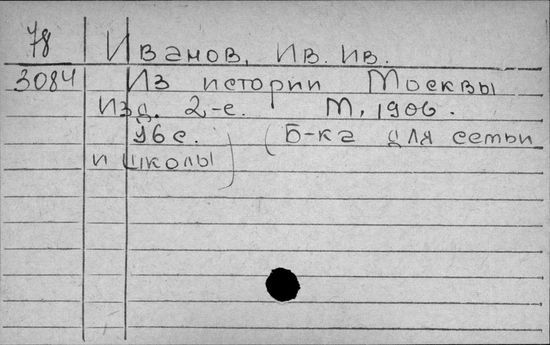 78 Иванов, Ив. Ив.
3084 Из истории Москвы
Изд. 2-е. М, 1906.
96 с. (Б-ка для семьи
и школы)